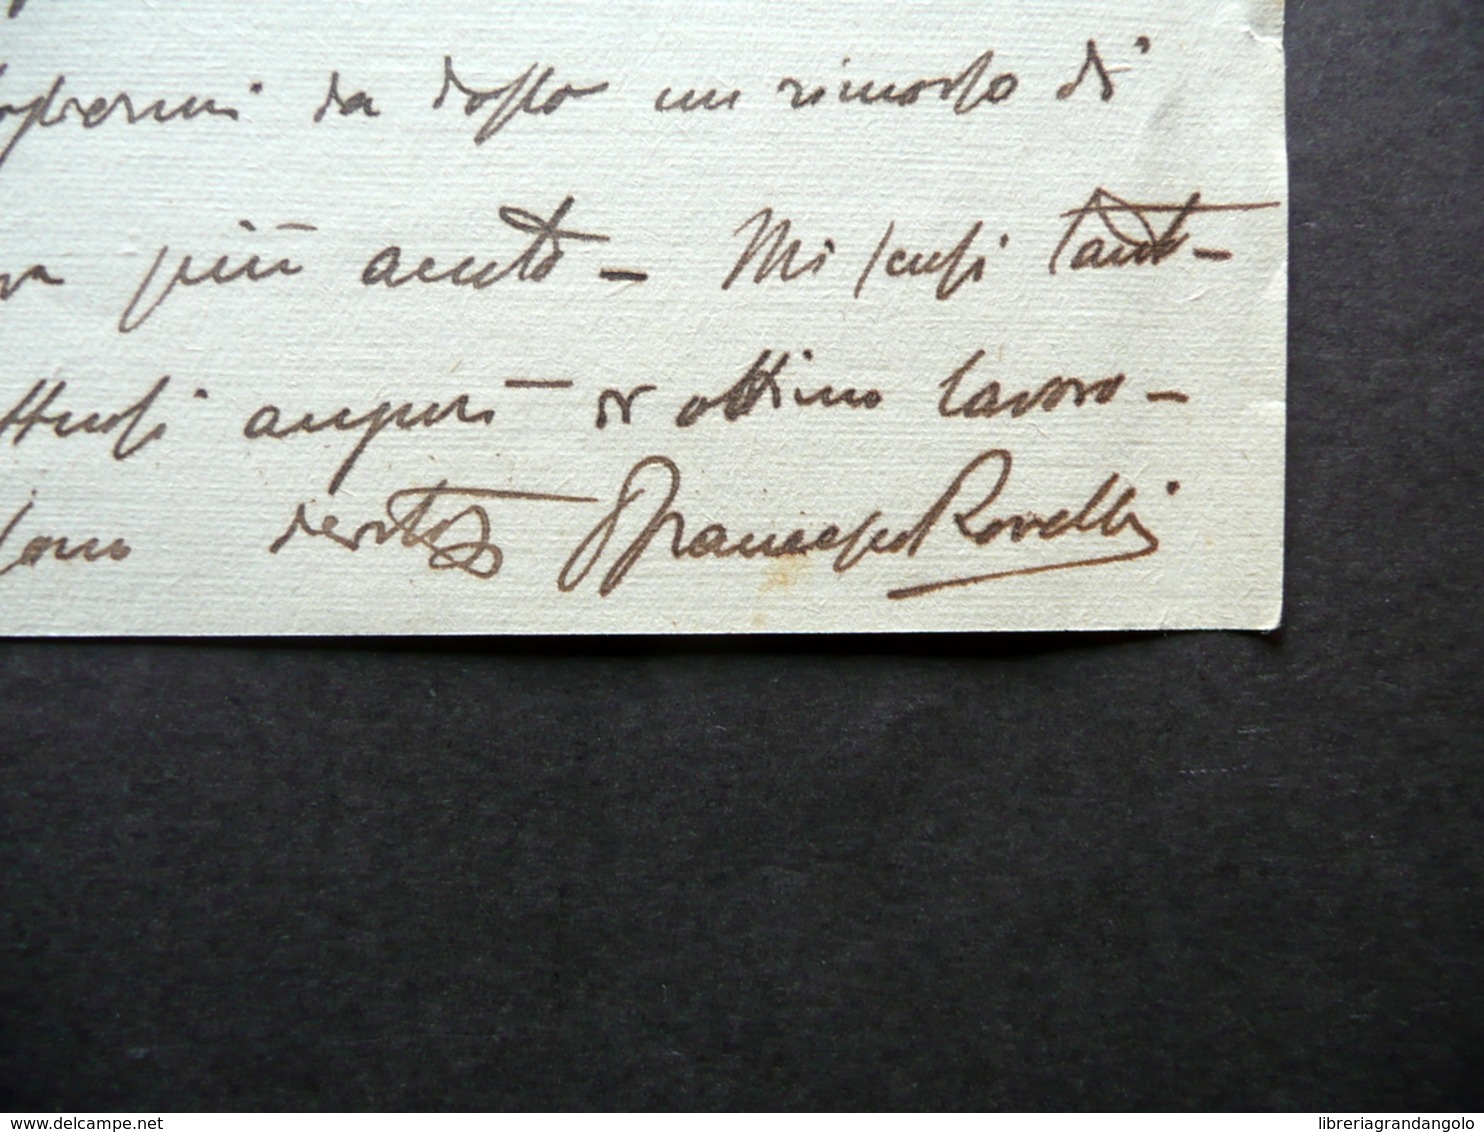 togliermi da dosso un rimorso di
più acuto – Mi scusi tanto –
affettuosi auguri di ottimo lavoro –
sono devoto Francesco Rovelli
www.delcampe.net
libreriagrandangolo